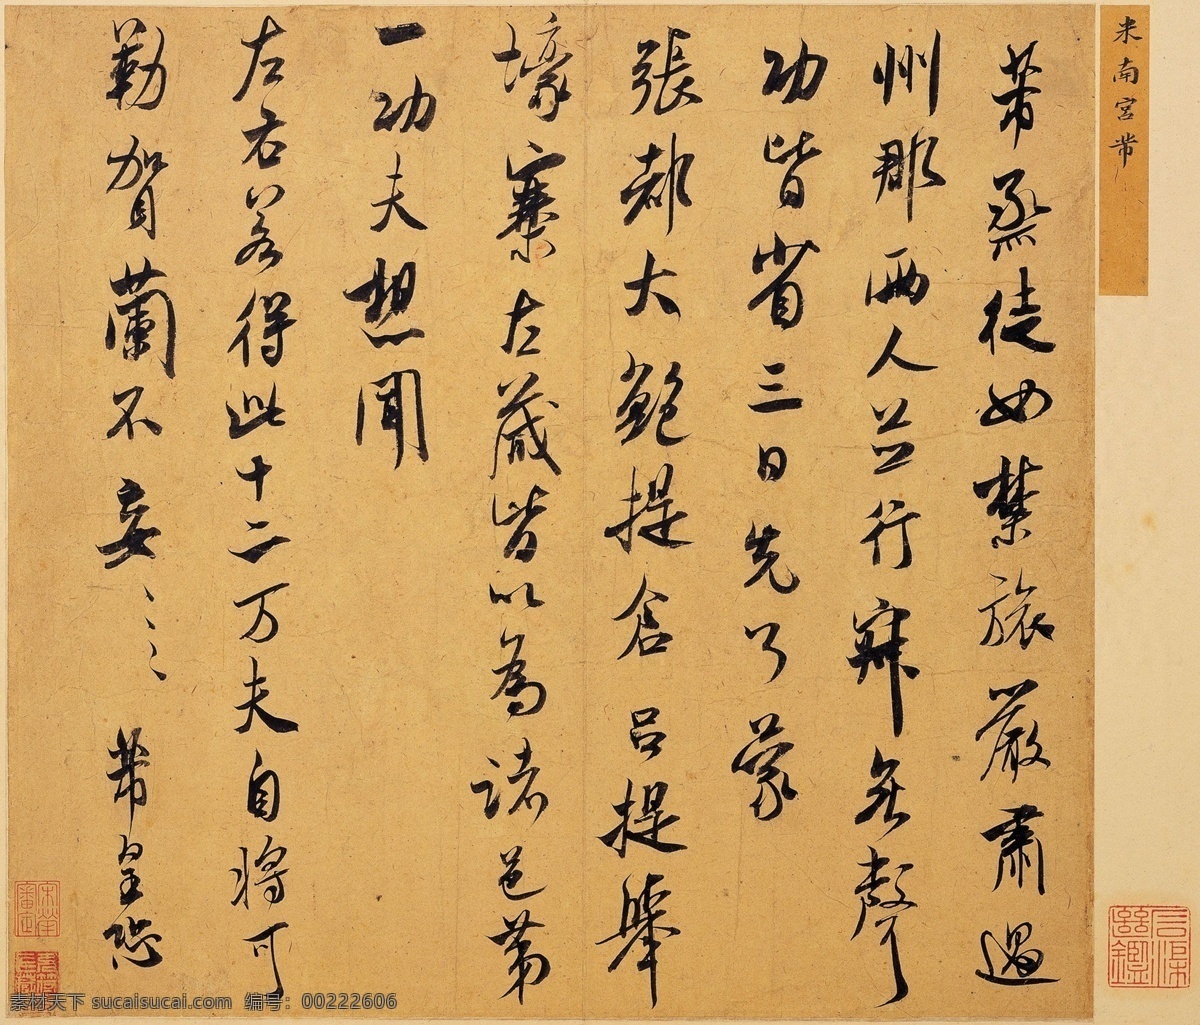 米南宮芾
芾烝徒如禁旅嚴肅過
州郡兩人並行寂無聲
功皆省三日先了蒙
張都大鮑提倉呂提舉
壕寨左藏皆以為諸邑第
一功夫想聞
左右若得此十二万夫自將可
勒賀蘭不妄〻〻芾皇恐
宋犖審定
素材天下 sucaisucai.com 编号：00222606